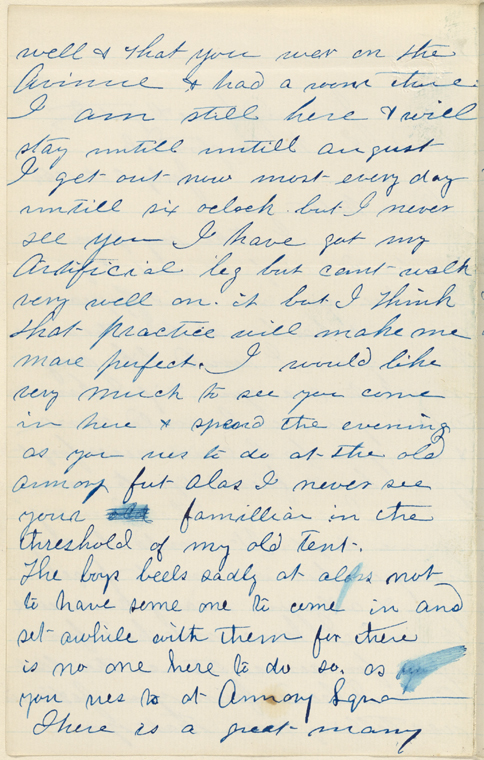 well & that you wer on the
Avinue & had a room there
I am still here & will
stay untill untill august
I get out now most every day
untill six oclock but I never
see you I have got my
Artificial leg but cant walk
very well on it but I think
that practice will make me
more perfect. I would like
very much to see you come
in here & spend the evening
as you ues to do at the old
armory but alas I never see
your old familliar in the
threshold of my old tent.
The boys beels sadly at a loss not
to have some one to come in and
set awhile with them for there
is no one here to do so. as
you ues to at Armory Squa
There is a great many